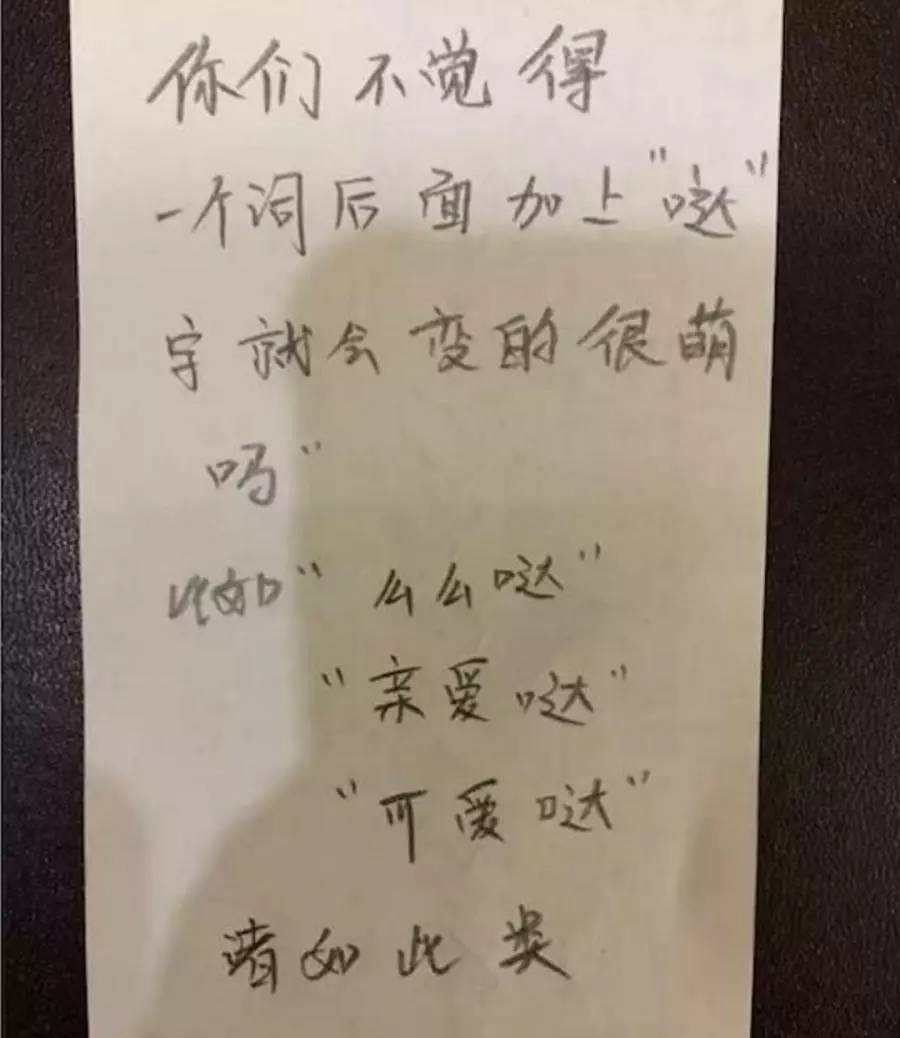 你们不觉得
一个词后面加上"哒"
字就会变的很萌
吗"
比如"么么哒"
"亲爱哒"
"可爱哒"
诸如此类